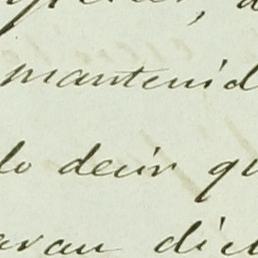 mantenid
lo decir qu
aran dich